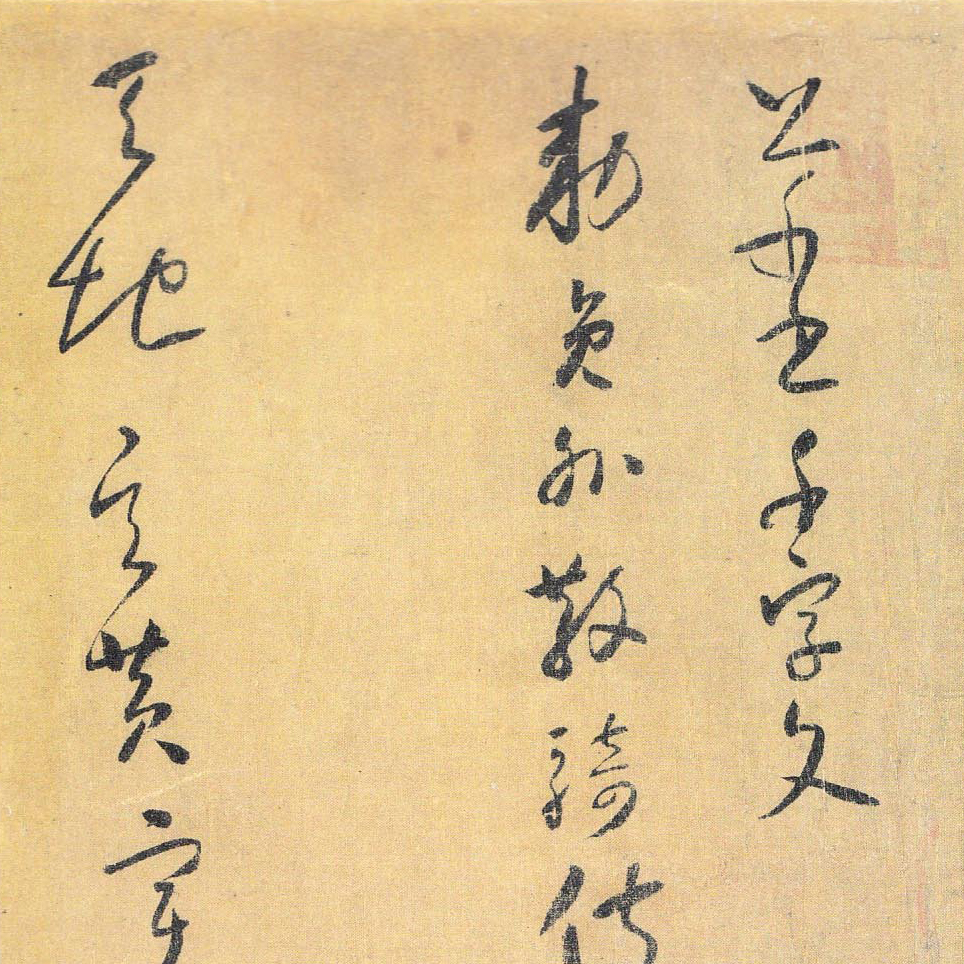 草書千字文
敕員外散騎侍
天地玄黃宇